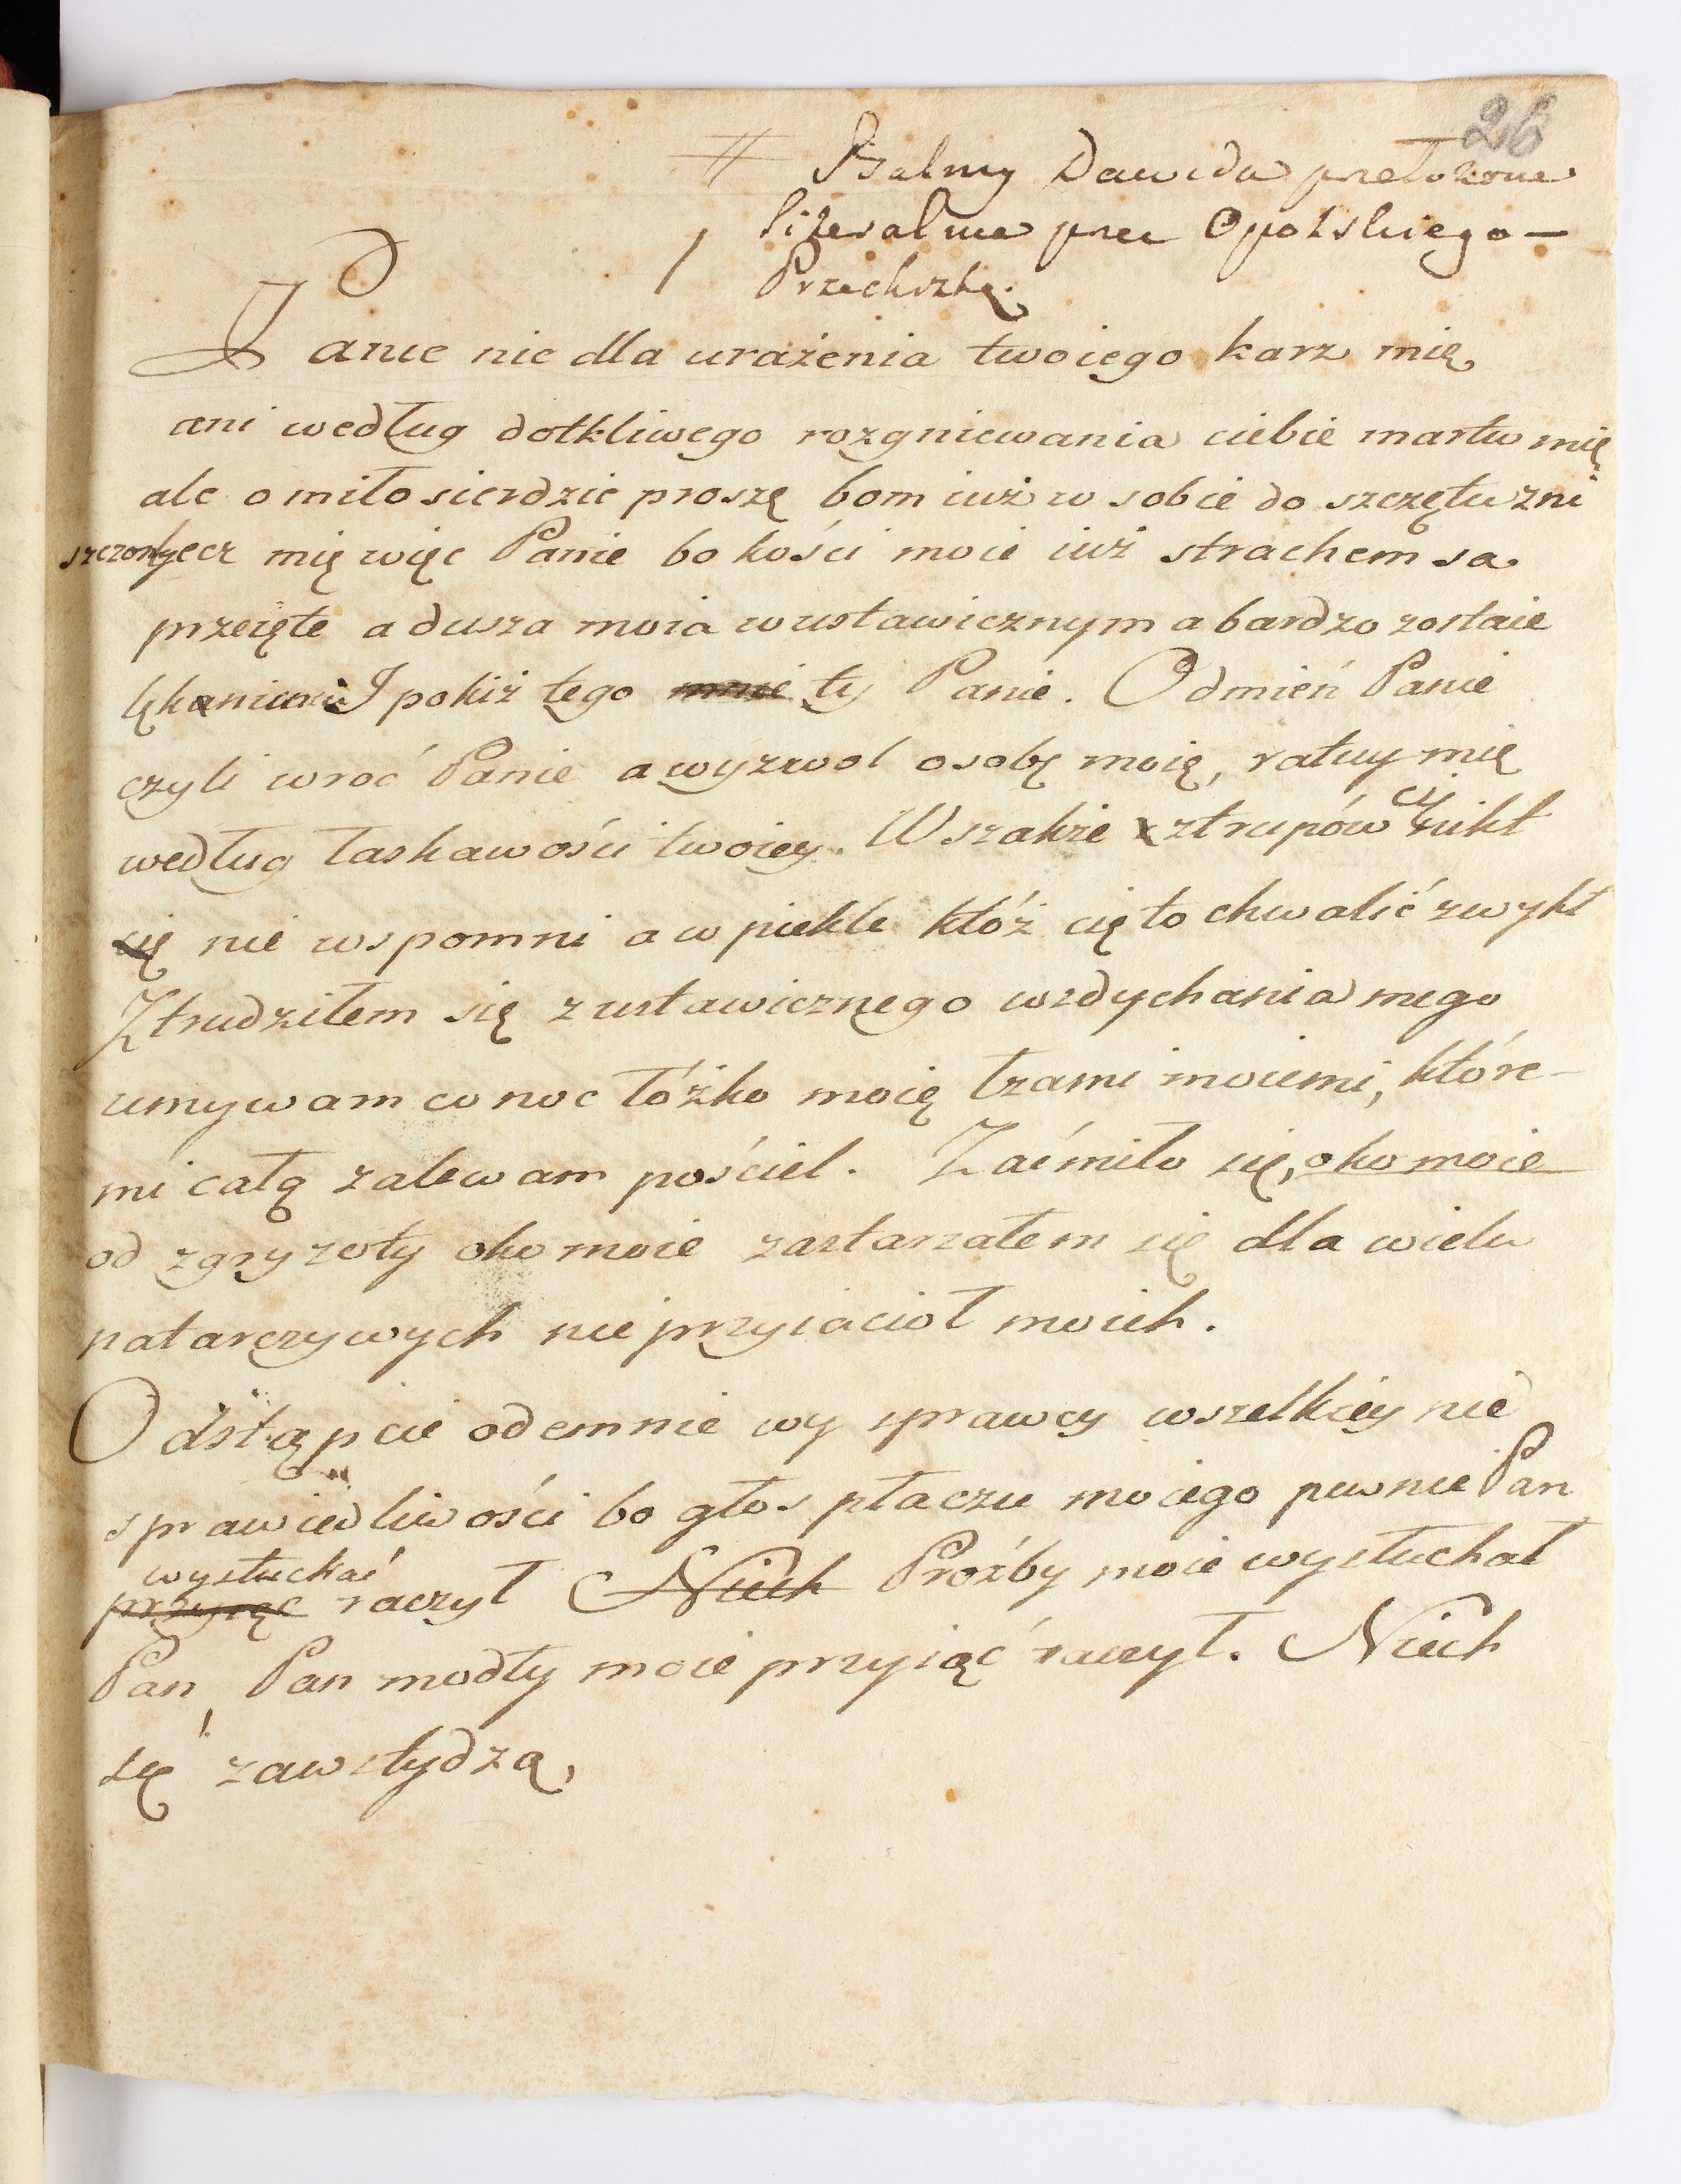 26
# Psalmy Dawida przełożone
literalnie przez Opolskiego —
/ Przechrztę.
Panie nie dla urażenia twoiego karz mię
ani według dotkliwego rozgniewania ciebie martw mię
ale o miłosierdzie proszę bom iuż w sobie do szczętu zni
szczony lecz mię więc Panie bo kości moie iuż strachem sa
przeięte a dusza moia w ustawicznym a bardzo zostaie
lękaniu I pokiż tego mnie ty Panie. Odmień Panie
czyli wroć Panie a wyzwol osobę moię, ratuy mię
według łaskawości twoiey. Wszakże z trupów cię nikt
się nie wspomni a w piekle któż cię to chwalić zwykł
Ztrudziłem się z ustawicznego wzdychania mego
umywam co noc łóżko moię łzami moiemi, które-
mi całą zalewam pościel. Zaćmiło się, oko moie
od zgryzoty oko moie zastarzałem się dla wielu
natarczywych nieprzyiacioł moich.
Odstąpcie odemnie wy sprawcy wszelkiey nie
sprawiedliwości bo głos płaczu moiego pewnie Pan
wysłuchać
przyiąć raczył Niech Proźby moie wysłuchał
Pan, Pan modły moie przyiąć raczył. Niech
się zawstydzą,